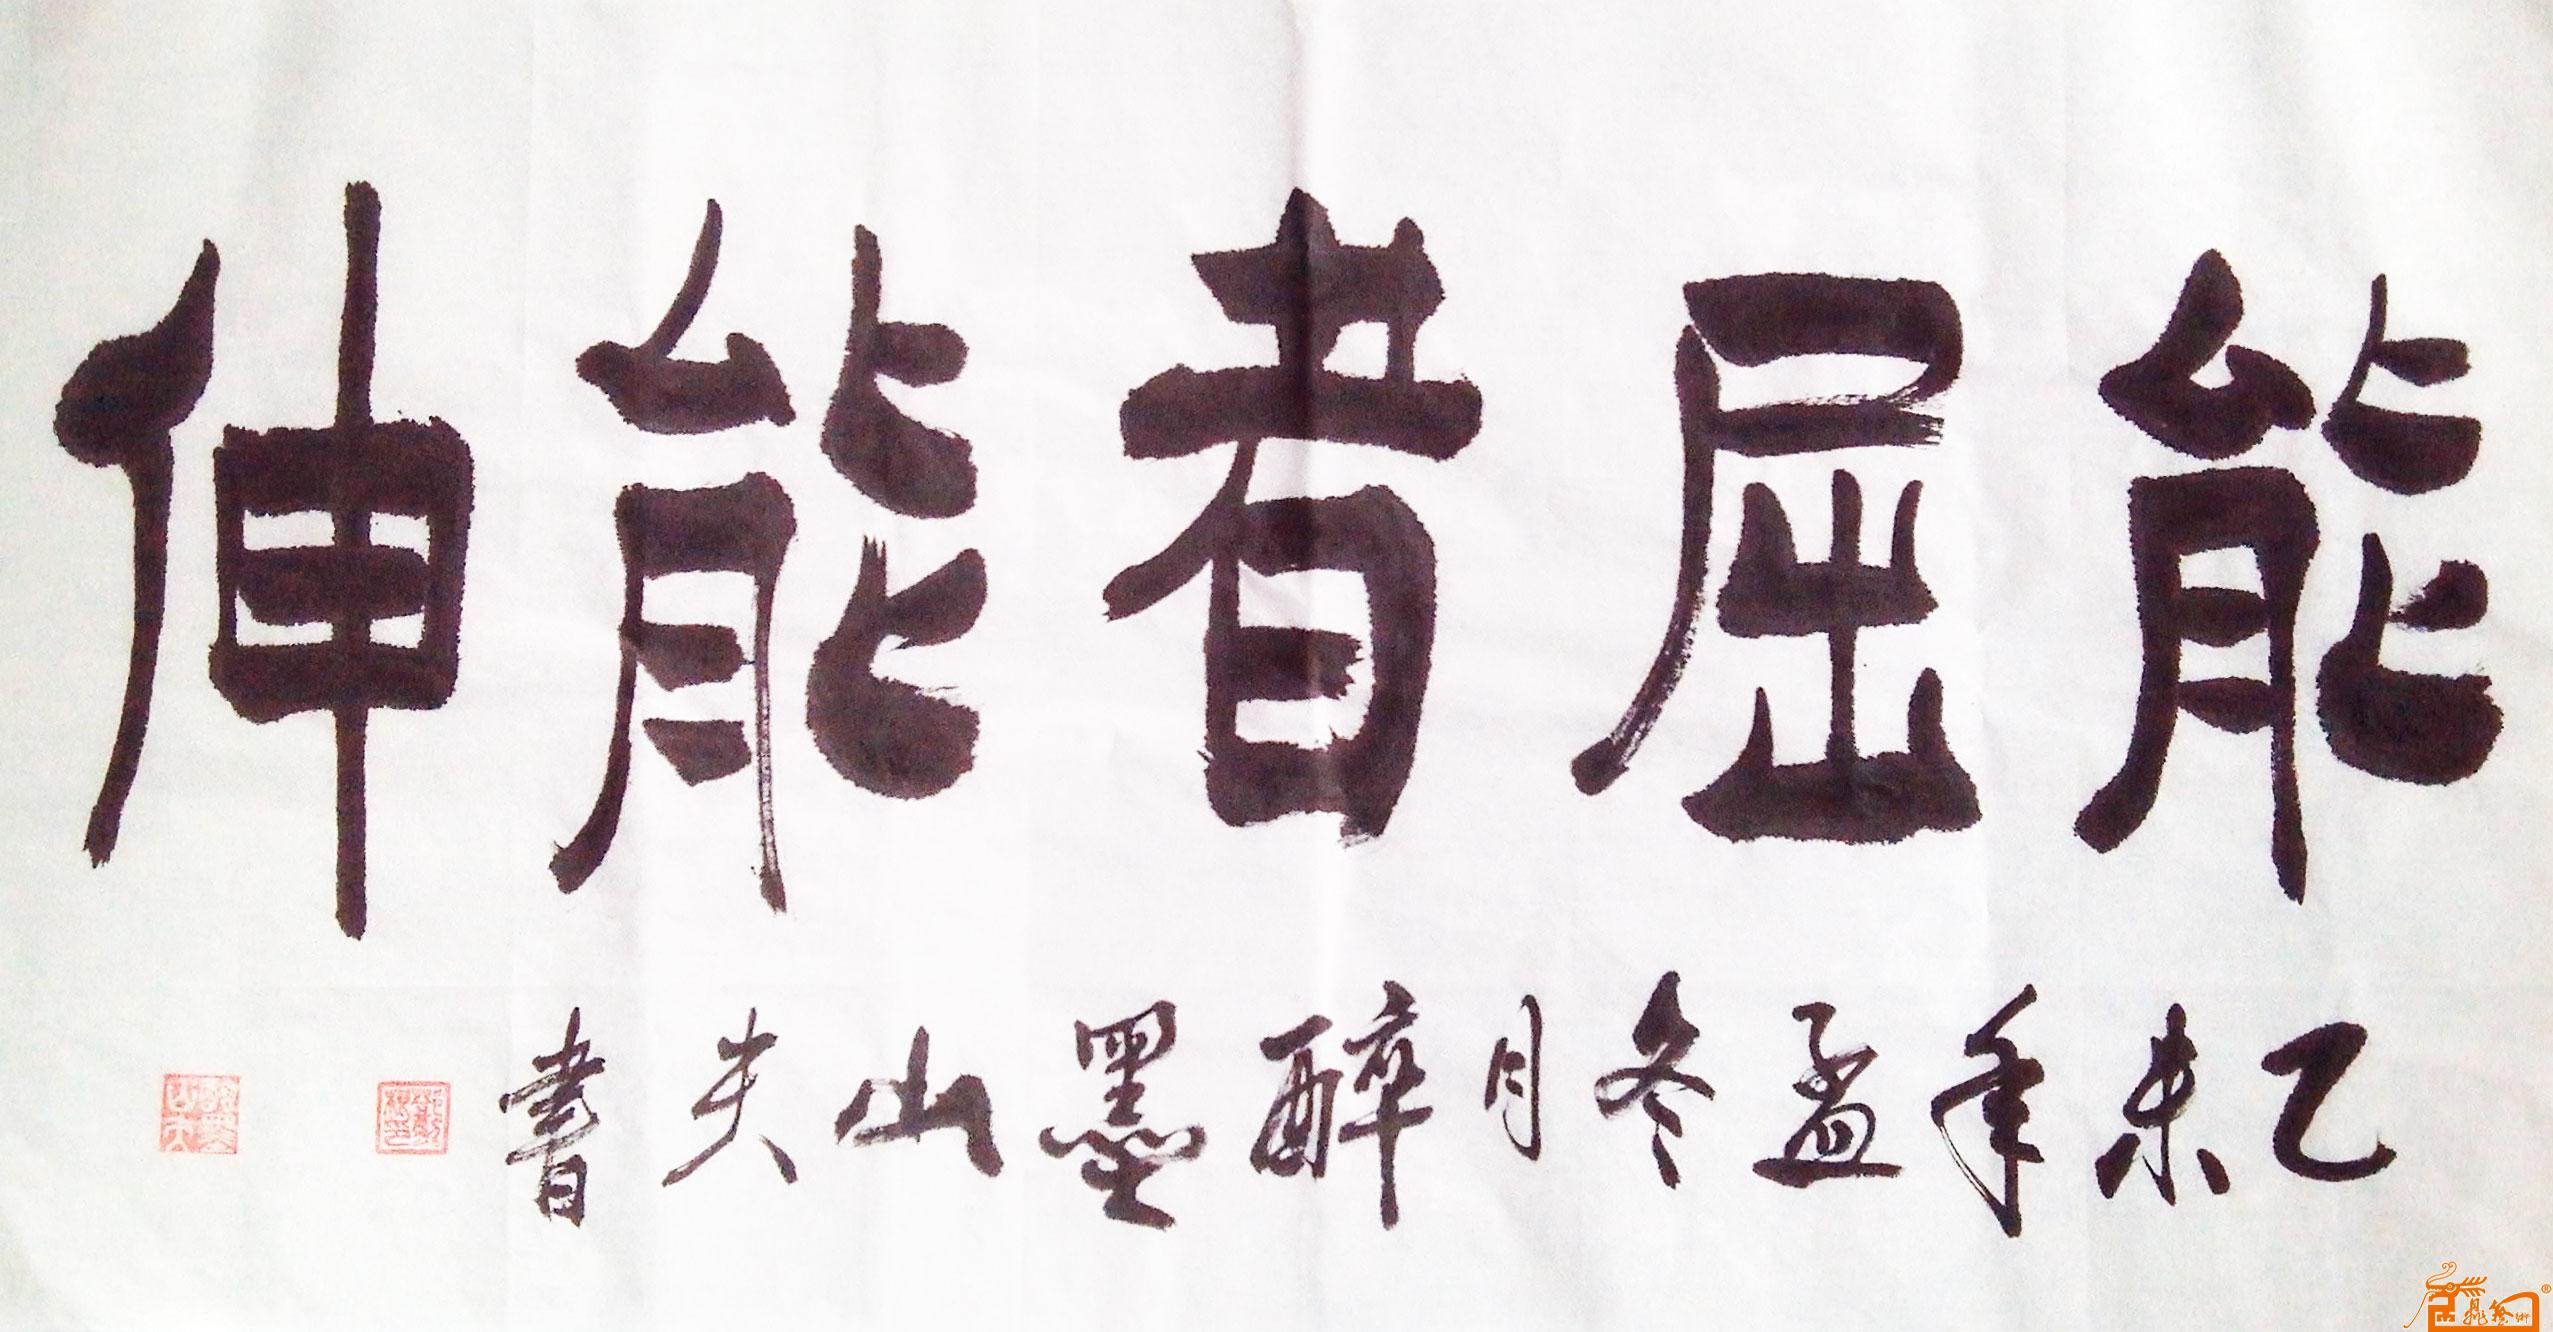 能屈者能伸
乙未年孟冬月醉墨山夫書